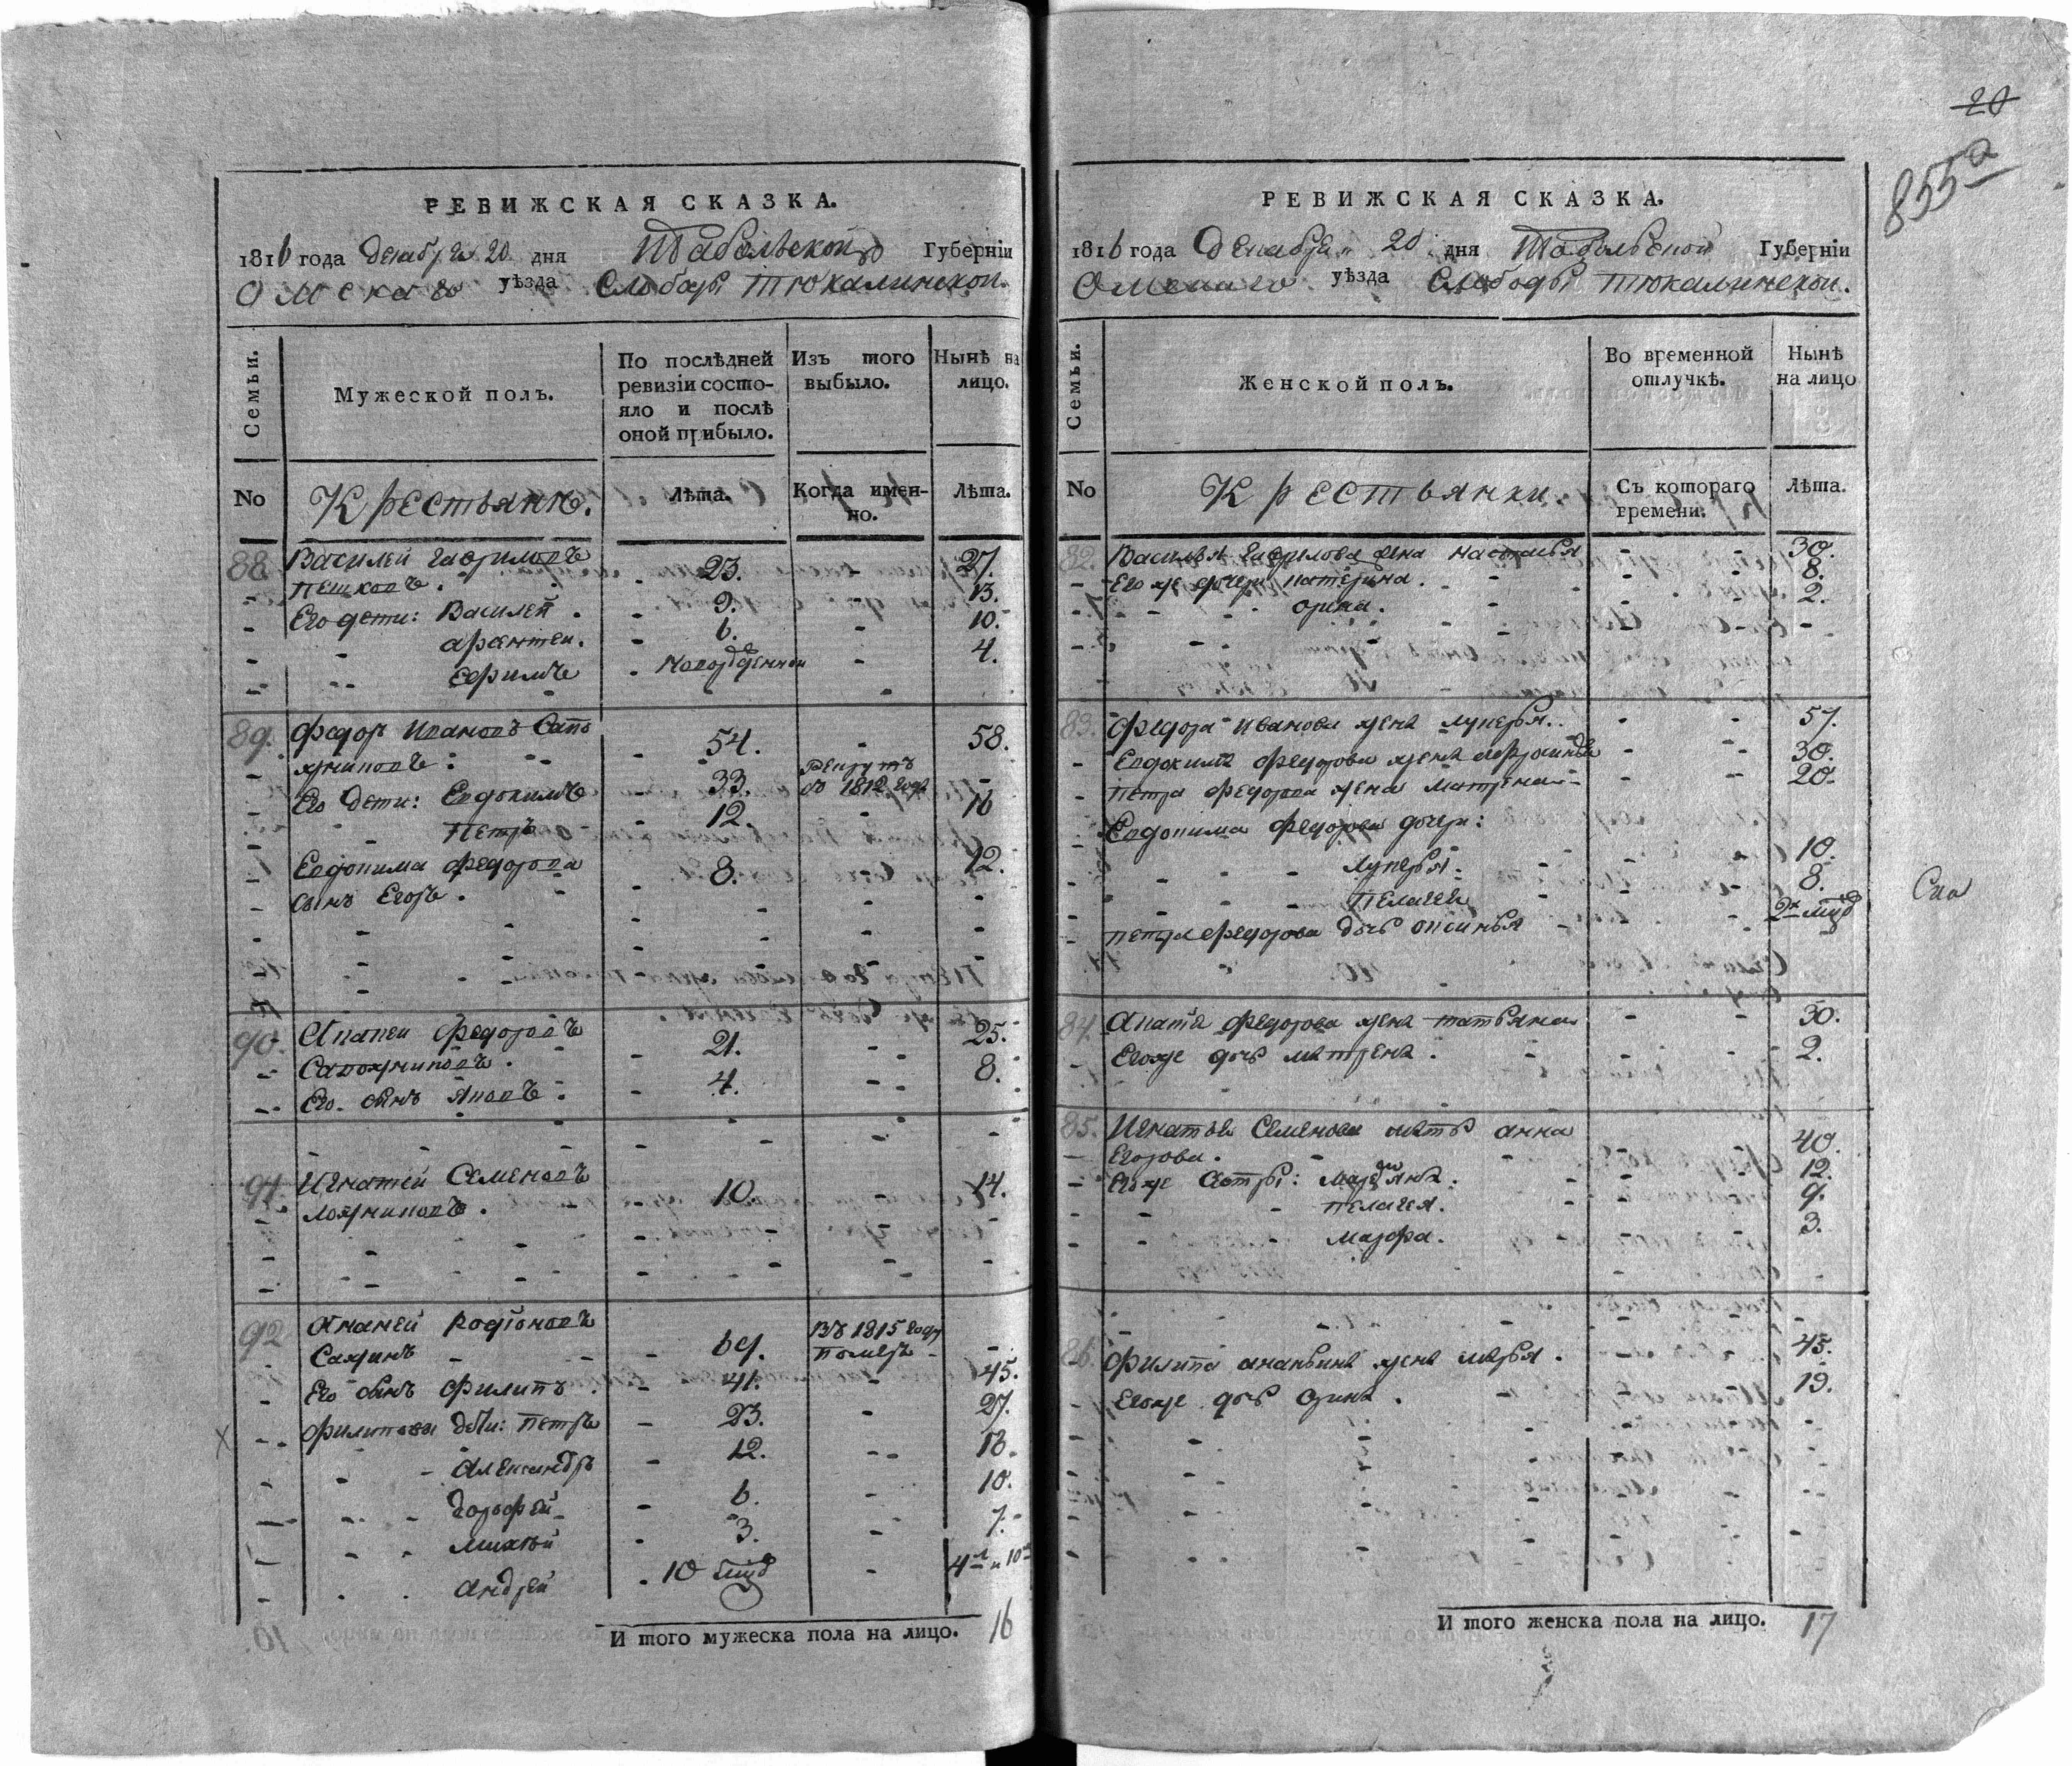 РЕВИЖСКАЯ СКАЗКА.
1816 года декабря 20 дня Тобольской Губерніи
Омскаго уѣзда Слободы Тюкалинской.
Семьи.
Мужеской полъ.
По послѣдней ревизіи состо-
яло и послѣ
оной прибыло.
Изъ того
выбыло.
Нынѣ на
лицо.
No
Крестьянъ.
Лѣта.
Когда имен-
но.
Лѣта.
88. Василей Гавриловъ
Пешковъ. 23. 27.
Его дети: Василей. 9. 13.
6. 10.
Ефимъ новорожденной 4.
89. Федор Ивановъ Сапо
жниковъ. 54. 58.
Его дети: Евдокимъ 33. Рекрутъ
въ 1812 году
Петръ 12. 16
Евдокима Федорова
сынъ Егоръ. 8. 12.
90. Федоровъ
Сапожниковъ. 21. 25.
Его сынъ Яковъ. 4. 8.
91. Игнатей Семеновъ
Ложниковъ. 10. 14.
92 Ананей Родіоновъ
69. въ 1815 году
померъ
Его сынъ Филипъ. 41. 45.
Филиповы дѣти: Петръ 23. 27.
Александръ 12. 16.
Дорофей 6. 10.
Михѣй 3. 7.
Андрей 10 4 и 10
И того мужеска пола на лицо. 16
20
855а
РЕВИЖСКАЯ СКАЗКА.
1816 года Декабря 20 дня Тобольской Губерніи
Омскаго уѣзда Слободы Тюкалинской.
Семьи.
Женской полъ.
Во временной
отлучкѣ.
Нынѣ
на лицо
No
Крестьянки.
Съ котораго
времени.
Лѣта.
82. Василья Гаврилова жена Настасья 30.
Его же дочери Катерина. 8.
Орина. 2.
83. Федора Иванова жена Лукерья. 57.
Евдокима Федорова жена 30.
Петра Федорова жена Матрена 20.
Евдокима Федорова дочери:
Лукерья. 10.
Пелагея 8.
Петра Федорова дочь Оксинья 2
84. Федорова жена Татьяна 30.
Егоже дочь Матрена. 2.
85. Игнатья Семенова мать Анна
Егорова. 40.
Егоже сестры: 12.
Пелагея. 9.
Марфа. 3.
86. Филипа Ананьина жена Марья. 45.
Егоже дочь Орина. 19.
И того женска пола на лицо. 17